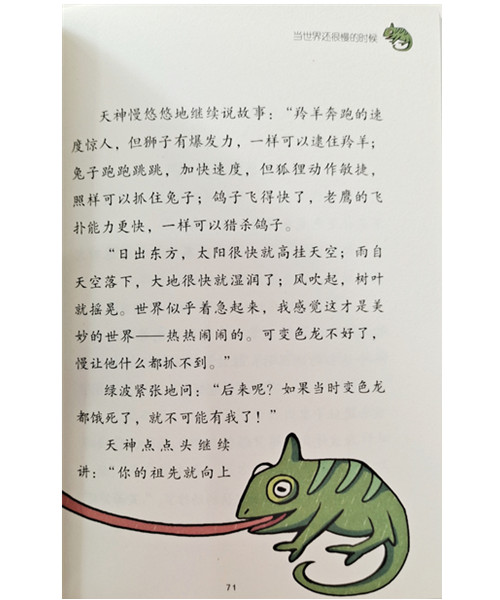 当世界还很慢的时候
天神慢悠悠地继续说故事：“羚羊奔跑的速
度惊人，但狮子有爆发力，一样可以逮住羚羊；
兔子跑跑跳跳，加快速度，但狐狸动作敏捷，
照样可以抓住兔子；鸽子飞得快了，老鹰的飞
扑能力更快，一样可以猎杀鸽子。
“日出东方，太阳很快就高挂天空；雨自
天空落下，大地很快就湿润了；风吹起，树叶
就摇晃。世界似乎着急起来，我感觉这才是美
妙的世界——热热闹闹的。可变色龙不好了，
慢让他什么都抓不到。”
绿波紧张地问：“后来呢？如果当时变色龙
都饿死了，就不可能有我了！”
天神点点头继续
讲：“你的祖先就向上
71